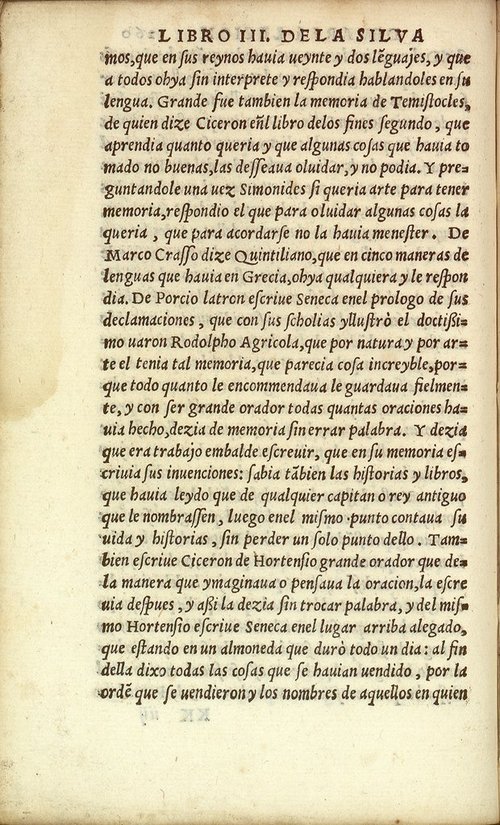 LIBRO III. DE LA SILVA
mos,que en sus reynos hauia ueynte y dos lẽguajes, y que
a todos ohya sin interprete y respondia hablandoles en su
lengua. Grande fue tambien la memoria de Temistocles,
de quien dize Ciceron eñl libro delos fines segundo, que
aprendia quanto queria y que algunas cosas que hauia to
mado no buenas,las desseaua oluidar, y no podia. Y pre=
guntandole una uez Simonides si queria arte para tener
memoria,respondio el que para oluidar algunas cosas la
queria, que para acordarse no la hauia menester. De
Marco Crasso dize Quintiliano,que en cinco maneras de
lenguas que hauia en Grecia,ohya qualquiera y le respon
dia. De Porcio latron escriue Seneca enel prologo de sus
declamaciones, que con sus scholias yllustrò el doctißi=
mo uaron Rodolpho Agricola,que por natura y por ar=
te el tenia tal memoria,que parecia cosa increyble,por=
que todo quanto le encommendaua le guardaua fielmen=
te, y con ser grande orador todas quantas oraciones ha=
uia hecho,dezia de memoria sin errar palabra. Y dezia
que era trabajo embalde escreuir, que en su memoria es=
criuia sus inuenciones: sabia tãbien las historias y libros,
que hauia leydo que de qualquier capitan o rey antiguo
que le nombrassen, luego enel mismo punto contaua su
uida y historias, sin perder un solo punto dello. Tam=
bien escriue Ciceron de Hortensio grande orador que de=
la manera que ymaginaua o pensaua la oracion,la escre
uia despues, y aßi la dezia sin trocar palabra, y del mis=
mo Hortensio escriue Seneca enel lugar arriba alegado,
que estando en un almoneda que durò todo un dia: al fin
della dixo todas las cosas que se hauian uendido, por la
ordẽ que se uendieron y los nombres de aquellos en quien